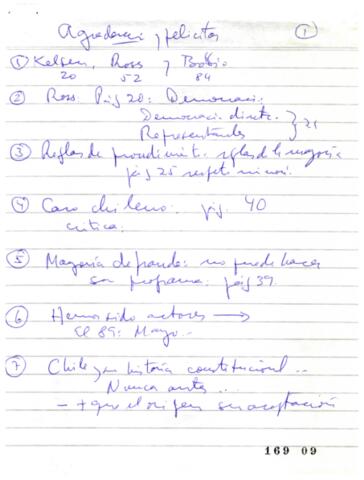 Agradecer y felicitar ①
① Kelsen, Ross y Bobbio
20 52 84
② Ross. Pág 20: Democracia.
Democracia directa
Representantes } 21
③ Reglas de procedimiento. reglas de la mayoría
pág 25 respeto minoría.
④ Caso chileno: pág. 40
crítica.
⑤ Mayoría de fondo: no puede hacer
su programa: pág 39.
⑥ Hemos sido actores →
el 89: Mayo..
⑦ Chile y su historia constitucional..
Nunca antes..
- + que el origen su aceptación
169 09